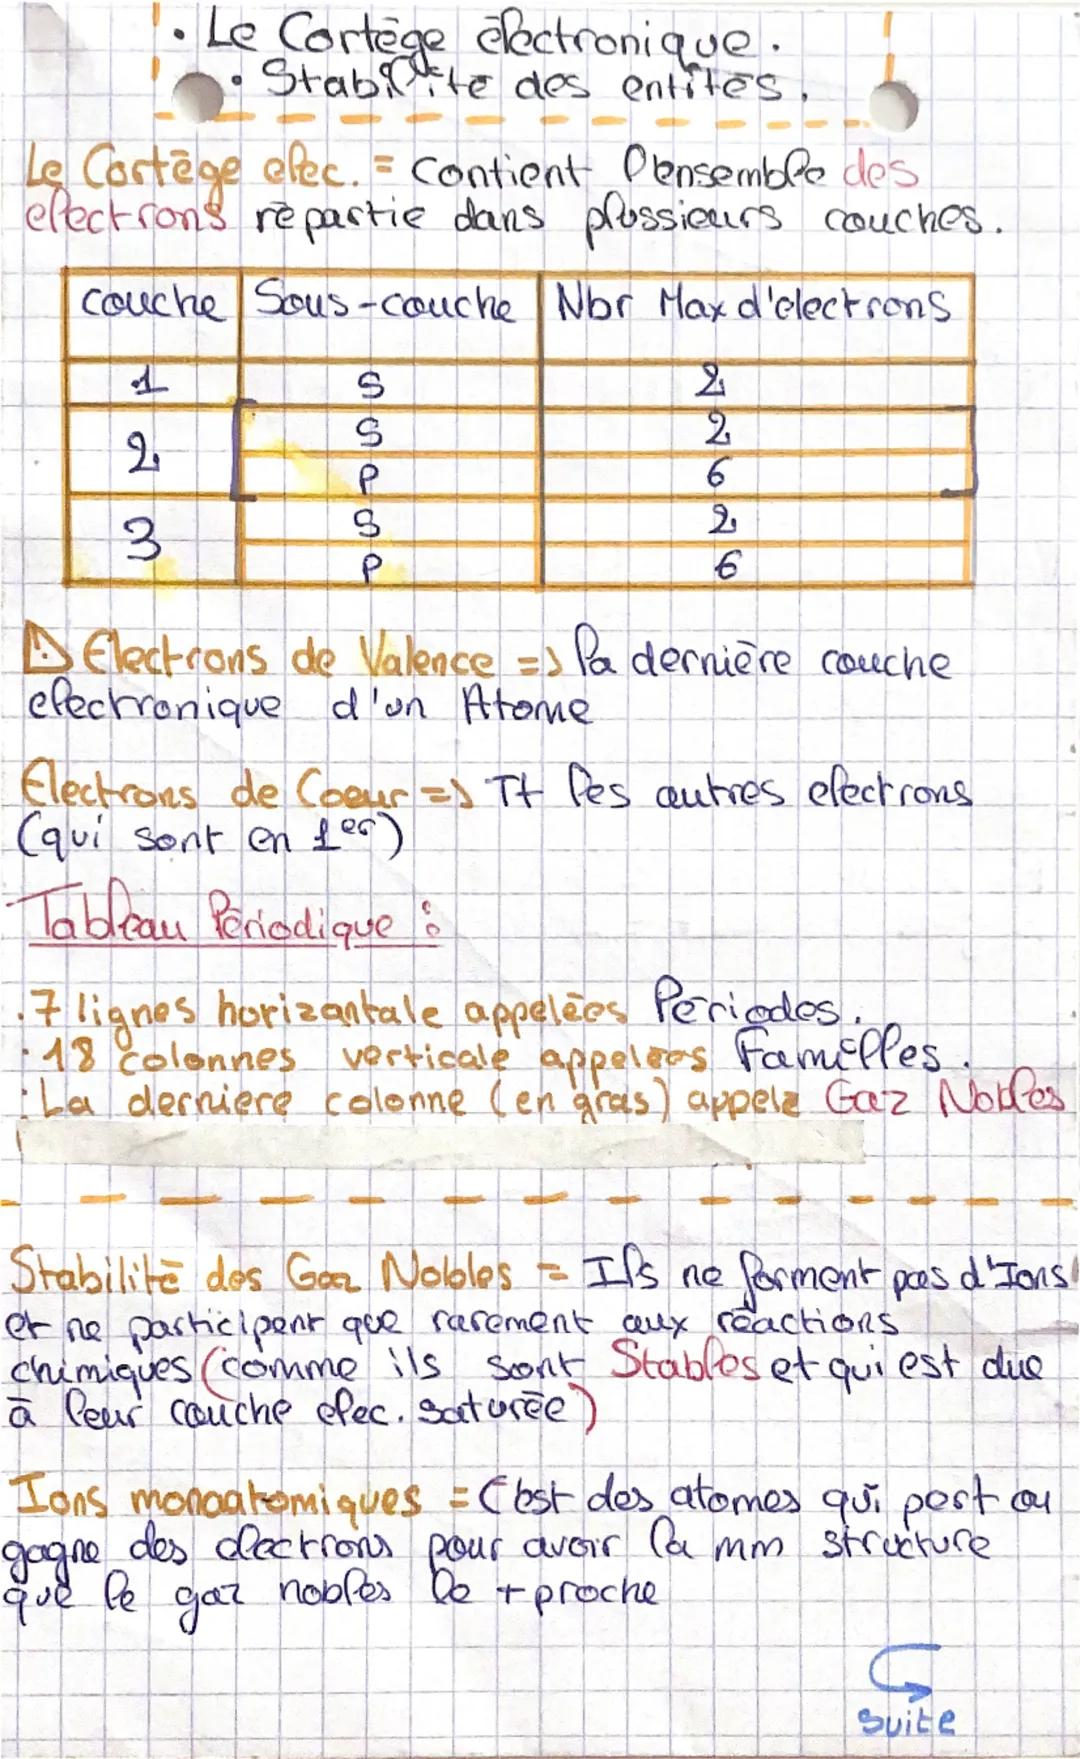 • Le Cortège électronique.
• Stabilité des entités.
Le Cortège elec. = contient l'ensemble des
electrons repartie dans plussieurs couches.
couche Sous-couche Nbr Max d'electrons
1 S 2
2 S 2
P 6
3 S 2
P 6
⚠ Electrons de Valence => la dernière couche
electronique d'un Atome
Electrons de Coeur => Tt les autres electrons
(qui sont en 1er)
Tableau Périodique :
. 7 lignes horizontale appelées Periodes.
. 18 colonnes verticale appelees Familles.
: La derniere colonne (en gras) appele Gaz Nobles
Stabilité des Gaz Nobles = Ils ne forment pas d'Ions
et ne participent que rarement aux réactions
chimiques (comme ils sont Stables et qui est due
à leur couche elec. saturée)
Ions monoatomiques = C'est des atomes qui pert ou
gagne des electrons pour avoir la mm structure
que le gaz nobles le + proche
suite